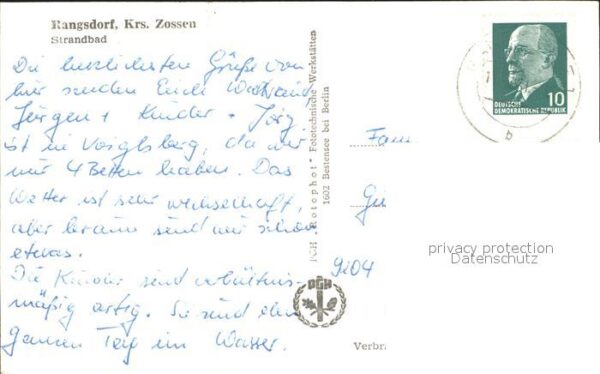 Rangsdorf, Krs. Zossen
Strandbad
Die herzlichsten Grüße von
hier senden Euch
Jürgen + Kinder + Jörg
ist in Voigtsberg, da wir
nur 4 Betten haben. Das
Wetter ist sehr wechselhaft,
aber braun sind wir schon
etwas.
Die Kinder sind verhältnis-
mäßig artig. Sie sind den
ganzen Tag im Wasser.
PGH „Rotophot" Fototechnische Werkstätten
1602 Bestensee bei Berlin
PGH
10
DEUTSCHE
DEMOKRATISCHE REPUBLIK
b
Fam
9204
privacy protection
Datenschutz
Verbr